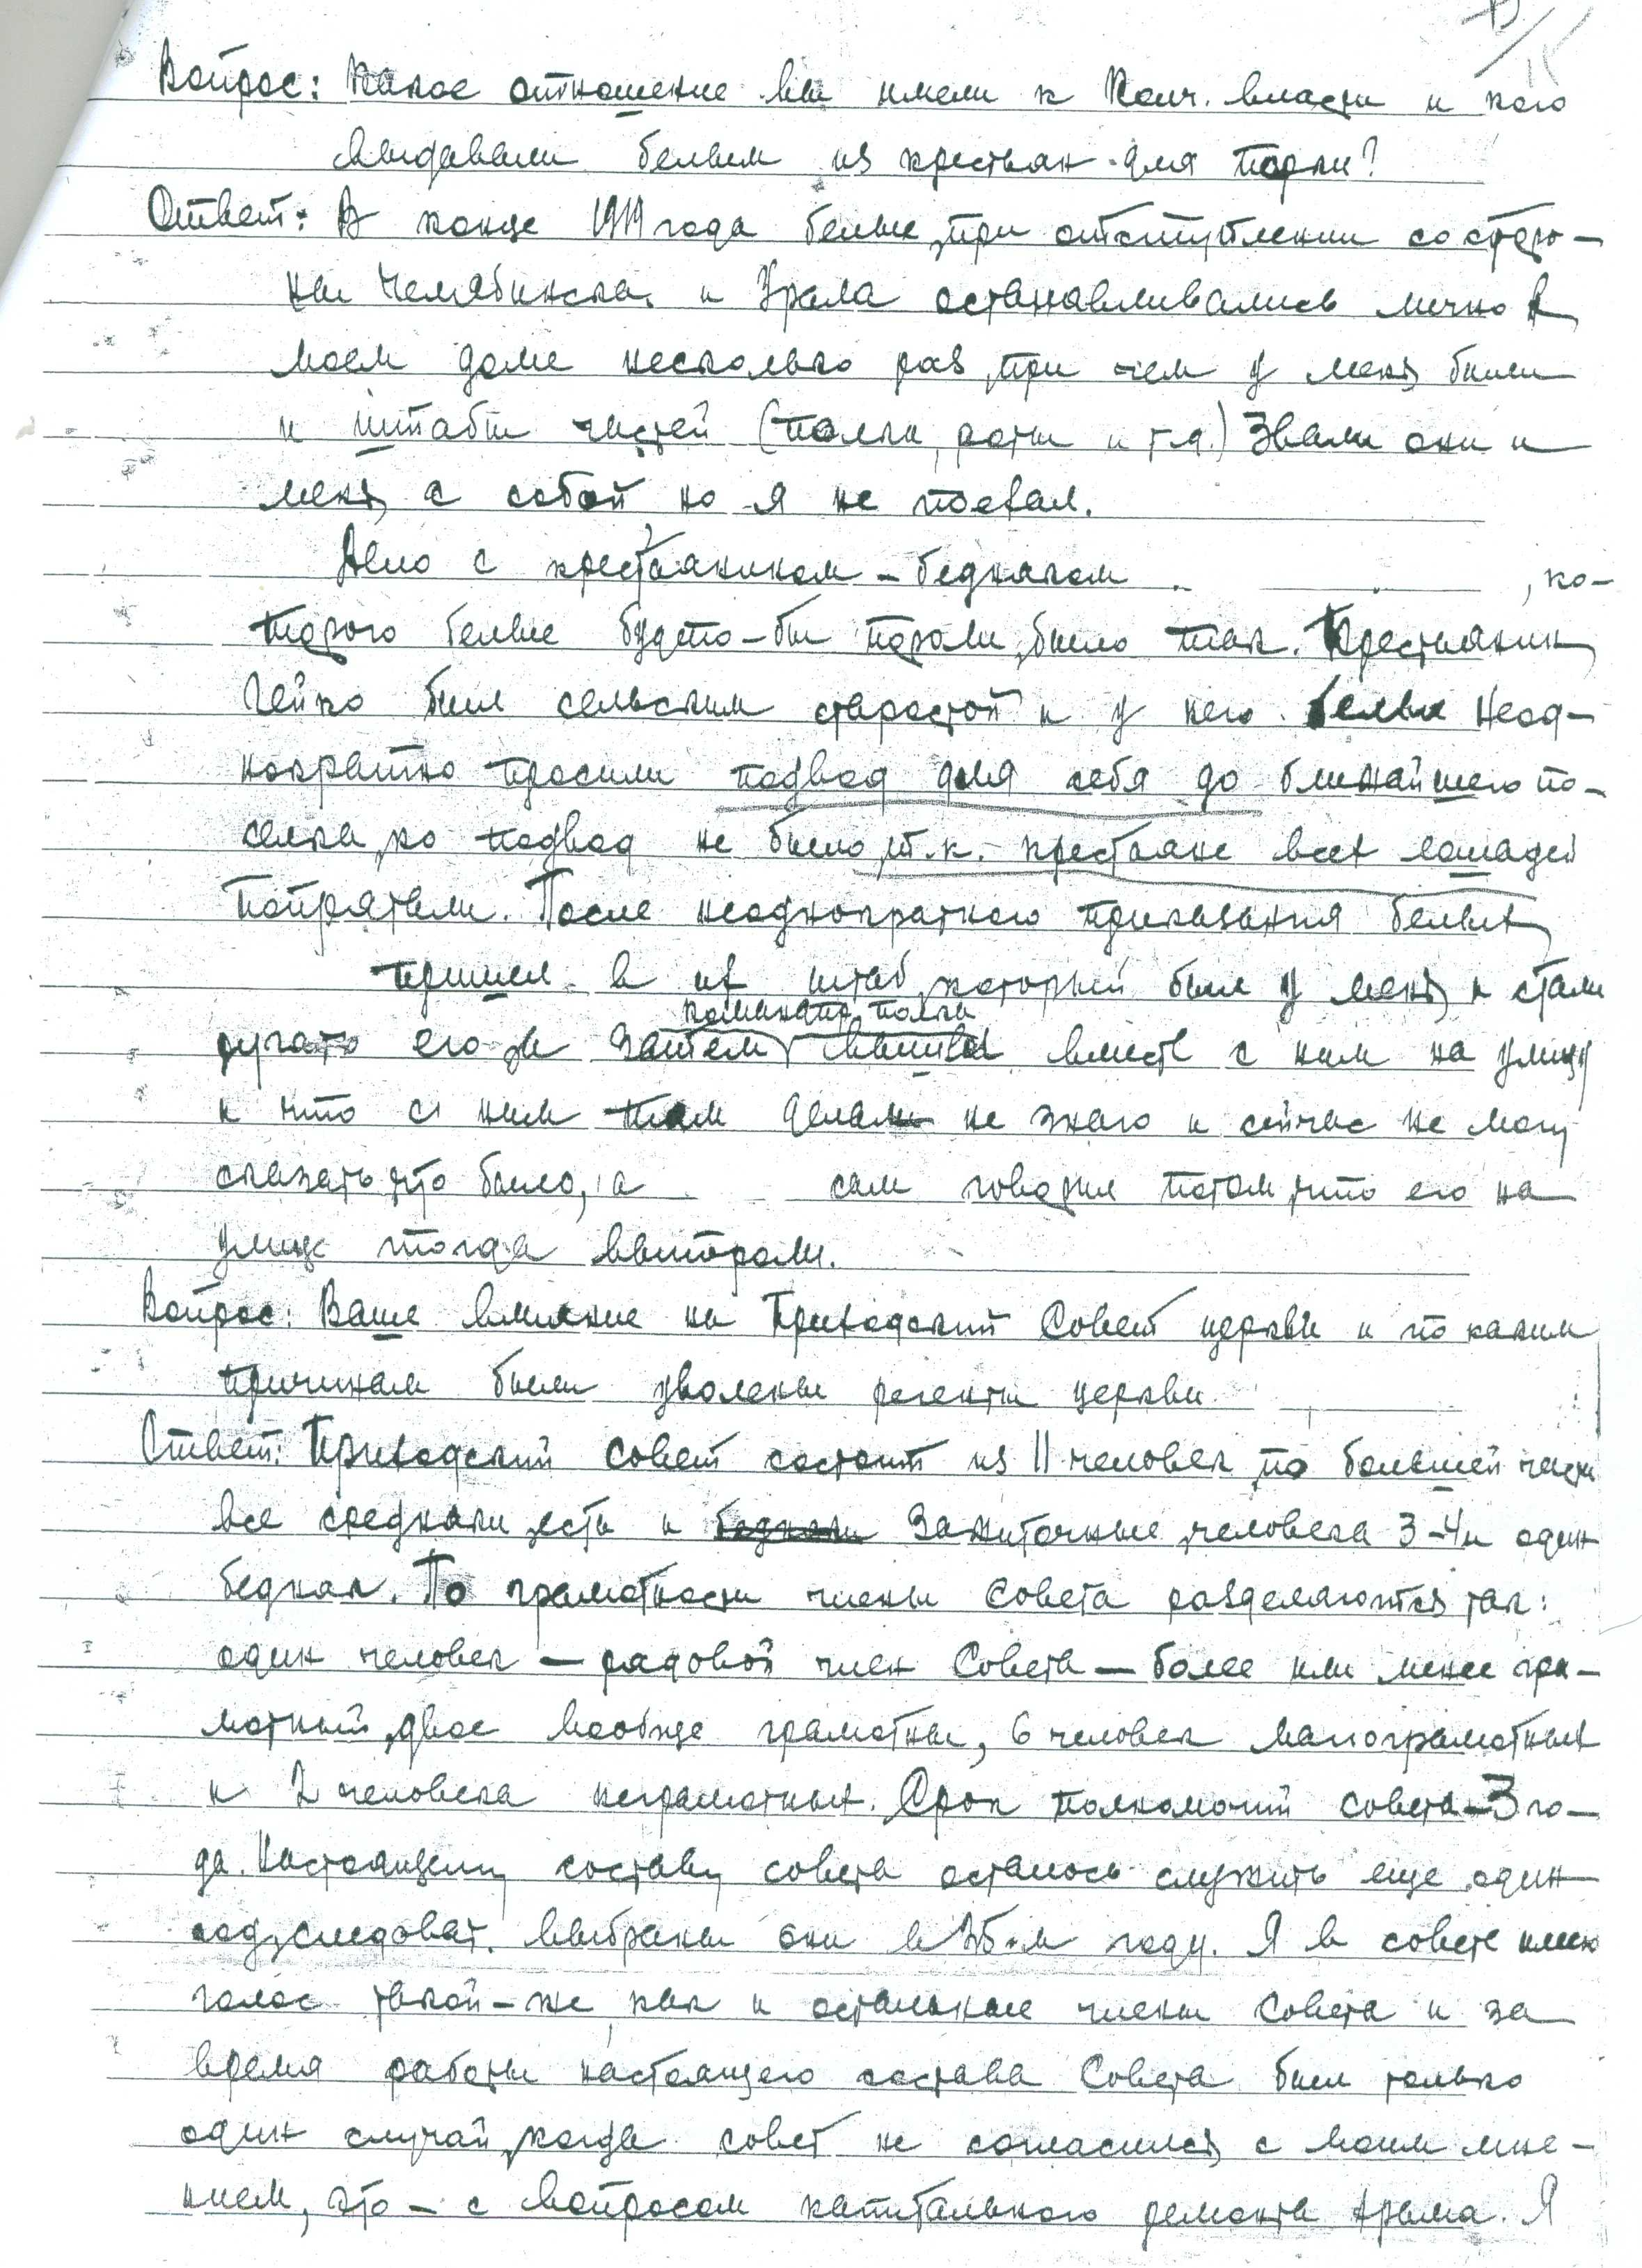 Вопрос: Какое отношение вы имели к Колч. власти и кого
выдавали белым из крестьян для порки?
Ответ: В конце 1919 года белые, при отступлении со сторо-
ны Челябинска и Урала останавливались лично в
моем доме несколько раз, при чем у меня были
и штабы частей (полки, роты и т.д.) Звали они и
меня с собой но я не поехал.
Дело с крестьянином-бедняком , ко-
торого белые будто-бы пороли, было так. Крестьянин
был сельским старостой и у него белые неод-
нократно просили подвод для себя до ближайшего по-
селка, но подвод не было, т.к. крестьяне всех лошадей
попрятали. После неоднократного приказания белых
пришел в их штаб, который был у меня и стали
ругать его и затем командир полка вышел вместе с ним на улицу
и что с ним там делали не знаю и сейчас не могу
сказать, что было, а сам говорил потом, что его на
улице тогда выпороли.
Вопрос: Ваше влияние на Приходский Совет церкви и по каким
причинам были уволены регенты церкви.
Ответ: Приходский совет состоит из 11 человек, по большей части
все середняки, есть и бедняки зажиточные, человека 3-4 и один
бедняк. По грамотности члены Совета разделяются так:
один человек — рядовой член Совета — более или менее гра-
мотный, двое вообще грамотны, 6 человек малограмотных
и 2 человека неграмотных. Срок полномочий совета - 3 го-
да. Настоящему составу совета осталось служить еще один
год, следоват. выбраны они в 25-м году. Я в совете имею
голос такой-же как и остальные члены Совета и за
время работы настоящего состава Совета был только
один случай, когда совет не согласился с моим мне-
нием, это - с вопросом капитального ремонта храма. Я